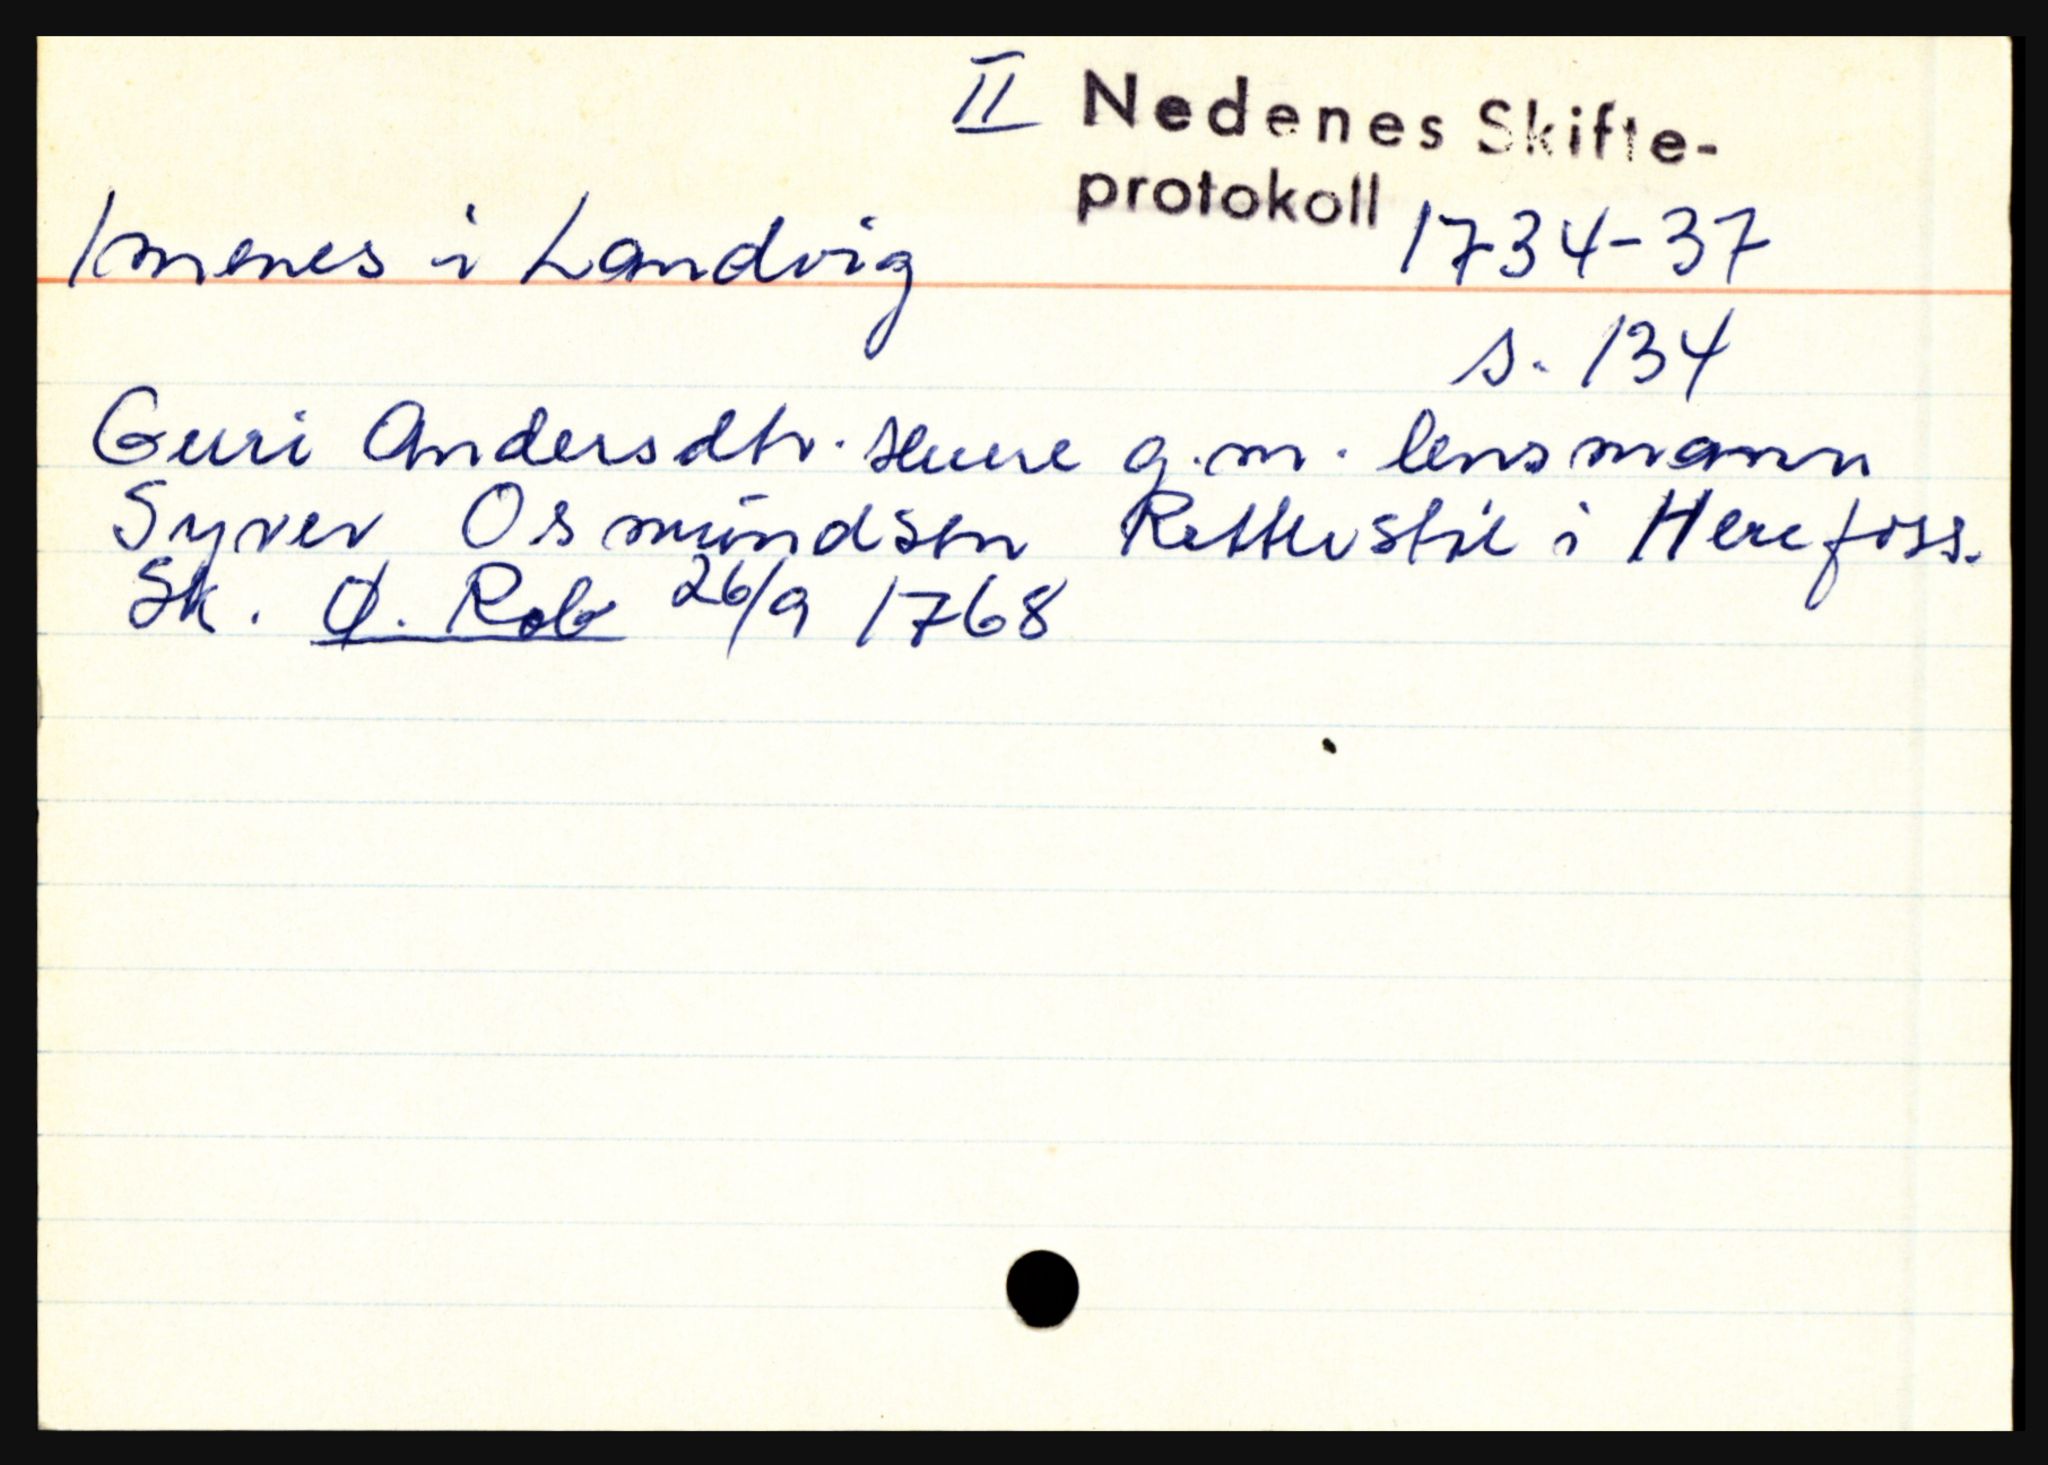 II Nedenes Skifte-
protokoll
Imenes i Landvig 1734-37
s. 134
Guri Andersdtr. g.m. lensmann
Syver Osmundsen i Herefoss.
Sk. Ø. Rob 26/9 1768